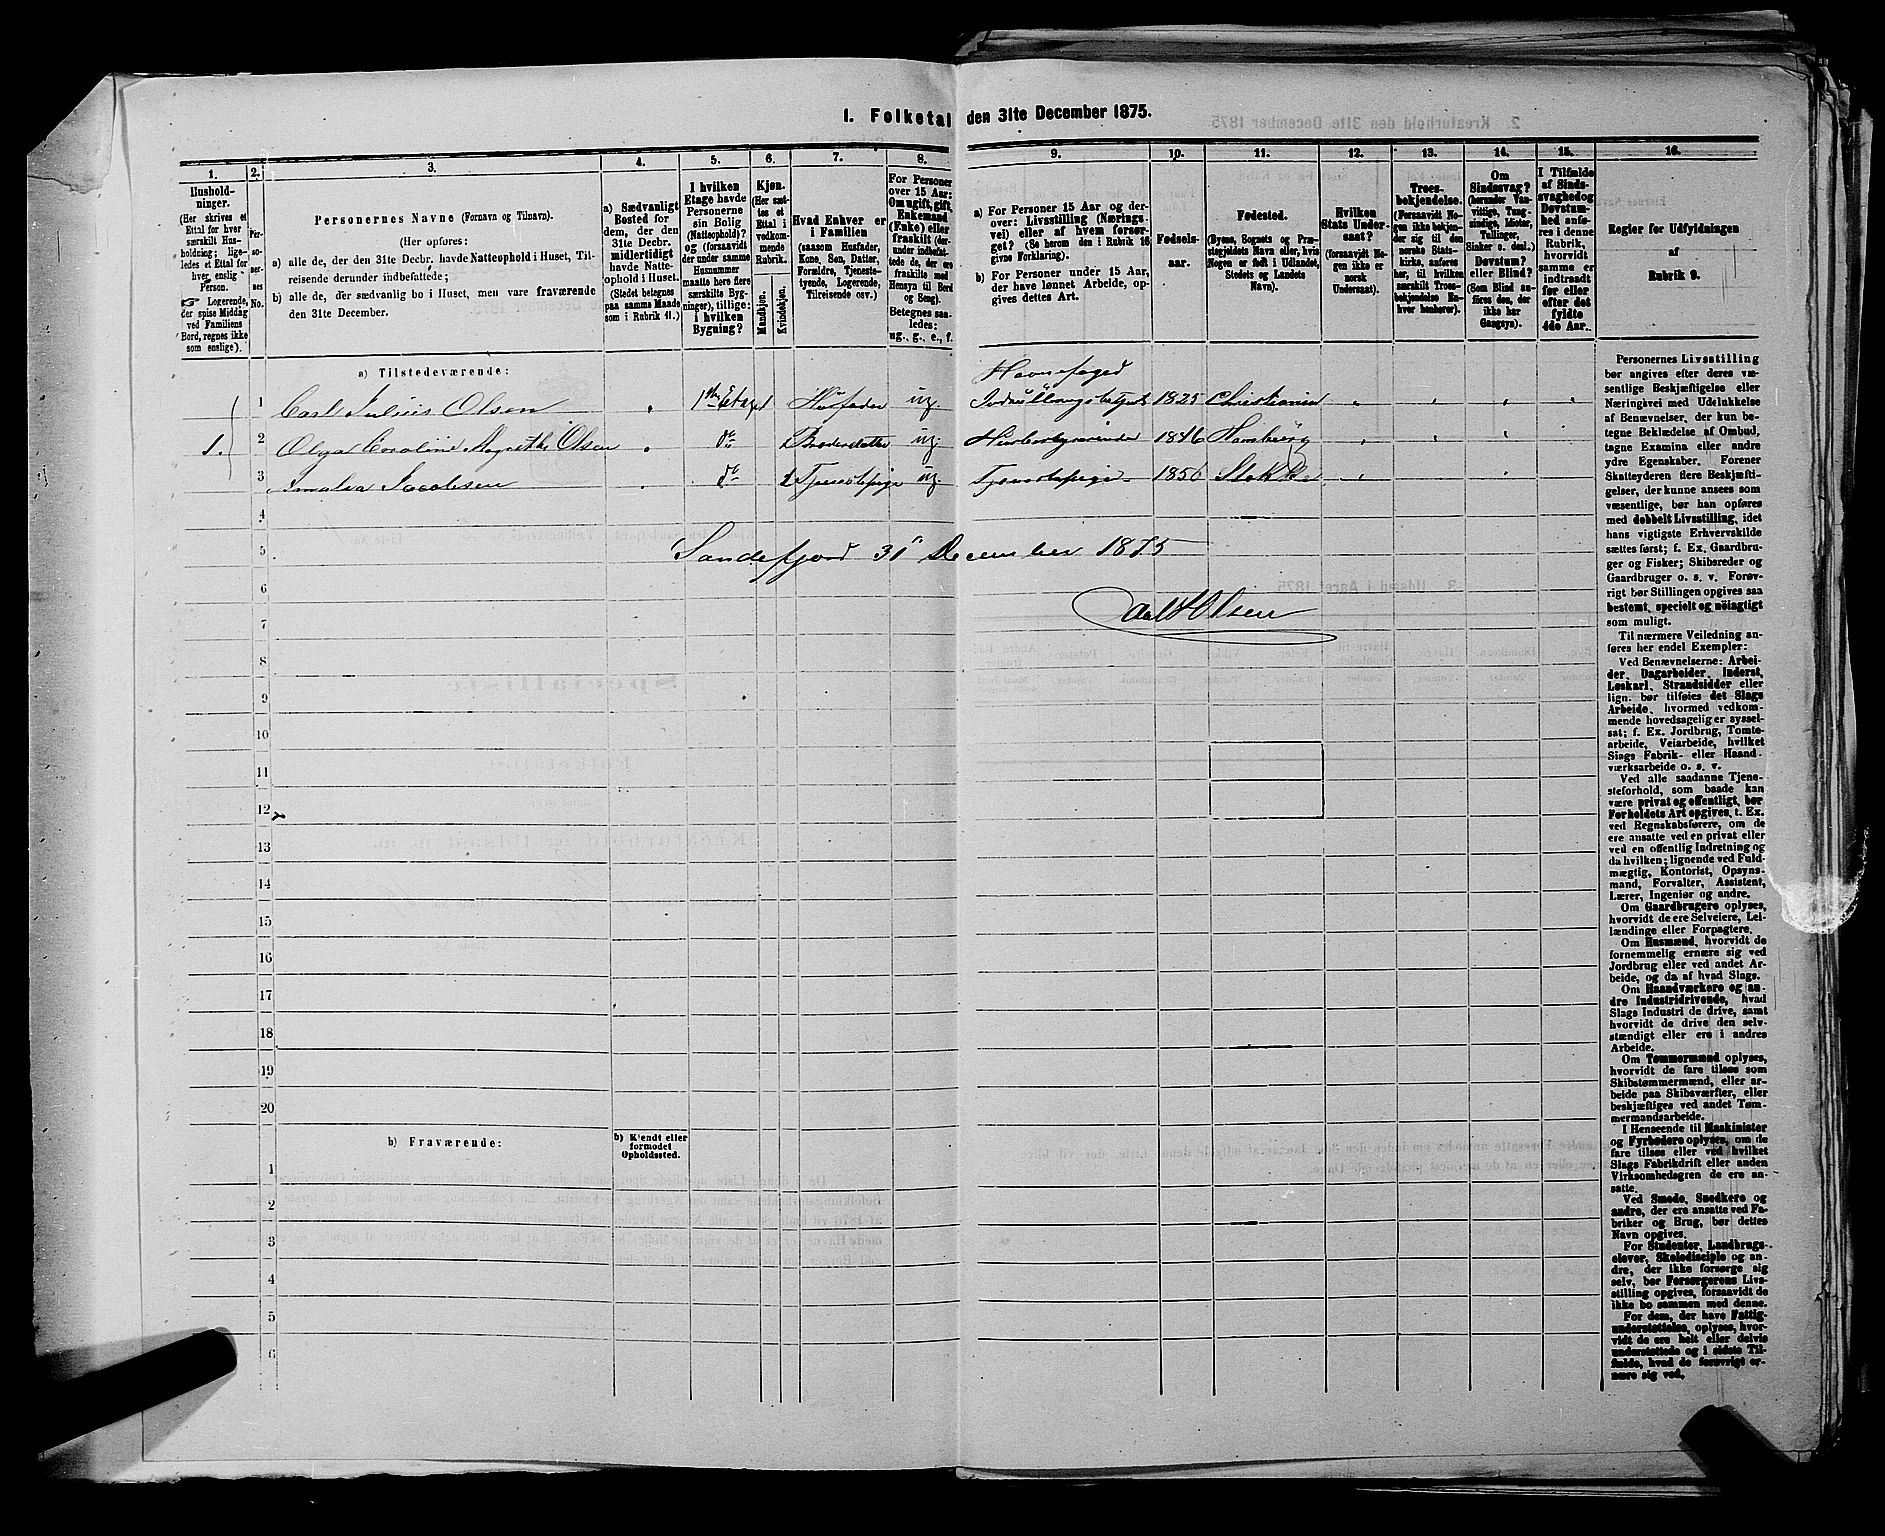 1. Folketal den 31te December 1875.
1. 2. 3. 4. 5. 6. 7. 8. 9. 10. 11. 12. 13. 14. 15. 16.
Hushold-
ninger.
(Her skrives et
Ettal for hver
særskilt Hus-
holdning; lige-
ledes et Ettal for
hver, enslig
Person.
Logerende,
der spise Middag
ved Familiens
Bord, regnes ikke
som enslige).
Per-
so-
ner-
nes
No.
Personernes Navne (Fornavn og Tilnavn).
(Her opføres:
a) alle de, der den 31te Decbr. havde Natteophold i Huset, Til-
reisende derunder indbefattede;
b) alle de, der sædvanlig bo i Huset, men vare fraværende
den 31te December.
a) Sædvanligt
Bosted for
dem, der den
31te Decbr.
midlertidigt
havde Natte-
ophold i Huset.
(Stedet betegnes
paa samme Maade
som i Rubrik 11.)
I hvilken
Etage havde
Personerne
sin Bolig
(Natteophold)?
og (forsaavidt
der under samme
Husnummer
maatte høre flere
særskilte Byg-
ninger), tillige:
i hvilken
Bygning?
Kjøn.
(Her sæt-
tes et
Ettal i
vedkom-
mende
Rubrik.
Mandkjøn.
Kvindekjøn.
Hvad Enhver er
i Familien
(saasom Husfader,
Kone, Søn, Datter,
Forældre, Tjeneste-
tyende, Logerende,
Tilreisende osv.)
For Personer
over 15 Aar:
Om ugift, gift,
Enkemand
(Enke) eller
fraskilt (der-
under indbefat-
tede de, der ere
fraskilte med
Hensyn til Bord
og Seng).
Betegnes saa-
ledes:
ug., g., e., f.
a) For Personer 15 Aar og der-
over: Livsstilling (Nærings-
vei) eller af hvem forsør-
get? (Se herom den i Rubrik 16
givne Forklaring).
b) For Personer under 15 Aar,
der have lønnet Arbeide, op-
gives dettes Art.
Fødsels-
aar.
Fødested.
(Byens, Sognets og Præ-
stegjeldets Navn eller, hvis
Nogen er født i Udlandet,
Stedets og Landets
Navn).
Hvilken
Stats Under-
saat?
(forsaavidt No-
gen ikke er
norsk
Undersaat).
Troes-
bekjendelse.
(Forsaavidt No-
gen ikke bekjen-
der sig til den
norske Stats-
kirke, anføres
her, til hvilken
særskilt Troes-
bekjendelse En-
hver henhører).
Om
Sindssvag?
(herunder Van-
vittige, Tung-
sindige, Idioter,
Tullinger,
Sinker o. desl.)
Døvstum?
eller Blind?
(Som Blind an-
føres den, der
ikke har
Gangsyn).
I Tilfælde
af Sinds-
svaghed og
Døvstum-
hed anfø-
res i denne
Rubrik,
hvorvidt
samme er
indtraadt
før eller
efter det
fyldte
4de Aar.
Regler for Udfyldningen
af
Rubrik 9.
a) Tilstedeværende:
Havnefoged
1 Carl Julius Olsen " 1ste Etage 1 Husfader ug. 1825 Christiania " " " "
1. 2 Olga Caroline Magrethe Olsen " do 1 Broderdatter ug. 1846 Hamburg " " "
3 Amalia Jacobsen " do 1 Tjenestepige ug. Tjenestepige 1856 Stokke " "
4
5 Sandefjord 31 December 1875
6
7 Olsen
8
9
10
11
12
13
14
15
16
17
18
19
20
b) Fraværende:
b) Kjendt eller
formodet
Opholdssted.
1
2
3
4
5
6
Personernes Livsstilling
bør angives efter deres væ-
sentlige Beskjæftigelse eller
Næringsvei med Udelukkelse
af Benævnelser, der kun be-
tegne Beklædelse af Ombud,
tagne Examina eller andre
ydre Egenskaber. Forener
Skatteyderen flere Beskjæfti-
gelser, der kunne ansees som
væsentlige, bør han opføres
med dobbelt Livsstilling, idet
hans vigtigste Erhvervskilde
sættes først; f. Ex. Gaardbru-
ger og Fisker; Skibsreder og
Gaardbruger o. s. v. Forøv-
rigt bør Stillingen opgives saa
bestemt, specielt og nöiagtigt
som muligt.
Til nærmere Veiledning an-
føres her endel Exempler:
Ved Benævnelserne: Arbei-
der, Dagarbeider, Inderst,
Løskarl, Strandsidder eller
lign. bør tilføies det Slags
Arbeide, hvormed vedkom-
mende hovedsagelig er syssel-
sat; f. Ex. Jordbrug, Tomte-
arbeide, Veiarbeide, hvilket
Slags Fabrik- eller Haand-
værksarbeide o. s. v.
Ved alle saadanne Tjene-
steforhold, som baade kan
være privat og offentligt, bør
Forholdets Art opgives, t. Ex.
ved Regnskabsførere, om de
ere ansatte ved en privat eller
ved en offentlig Indretning og
da hvilken; lignende ved Fuld-
mægtig, Kontorist, Opsyns-
mand, Forvalter, Assistent,
Lærer, Ingeniør og andre.
Om Gaardbrugere oplyses,
hvorvidt de ere Selveiere, Lei-
lændinge eller Forpagtere.
Om Husmænd, hvorvidt de
fornemmelig ernære sig ved
Jordbrug eller ved andet Ar-
beide, og da af hvad Slags.
Om Haandværkere og an-
dre Industridrivende, hvad
Slags Industri de drive, samt
hvorvidt de drive den selv-
stændigt eller ere i andres
Arbeide.
Om Tømmermænd oplyses,
hvorvidt de fare tilsøs som
Skibstømmermænd, eller ar-
beide paa Skibsværfter, eller
beskjæftiges ved andet Tøm-
mermandsarbeide.
I Henseende til Maskinister
og Fyrbødere oplyses, om de
fare tilsøs eller ved hvilket
Slags Fabrikdrift eller anden
Virksomhedsgren de ere an-
satte.
Ved Smede, Snedkere og
andre, der ere ansatte ved Fa-
briker og Brug, bør dettes
Navn opgives.
For Studenter, Landbrugs-
elever, Skoledisciple og an-
dre, der ikke forsørge sig
selv, bør Forsørgerens Livs-
stilling opgives, forsaavidt de
ikke bo sammen med denne.
For dem, der have Fattig-
understøttelse, oplyses, hvor-
vidt de ere helt eller delvis
understøttede og i sidste Til-
fælde, hvad de forøvrigt er-
nære sig ved.